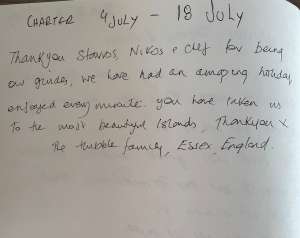 CHARTER 4 JULY - 18 JULY
Thankyou Stavros, Nikos & Clef for being
our guides, we have had an amazing holiday
enjoyed every minute. you have taken us
to the most beautiful Islands, Thankyou x
The family, Essex, England.